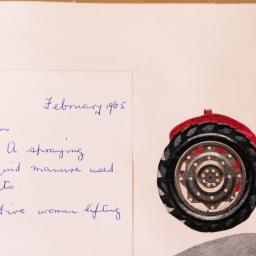 February 1965
A spraying
manure used.
Five women lifting